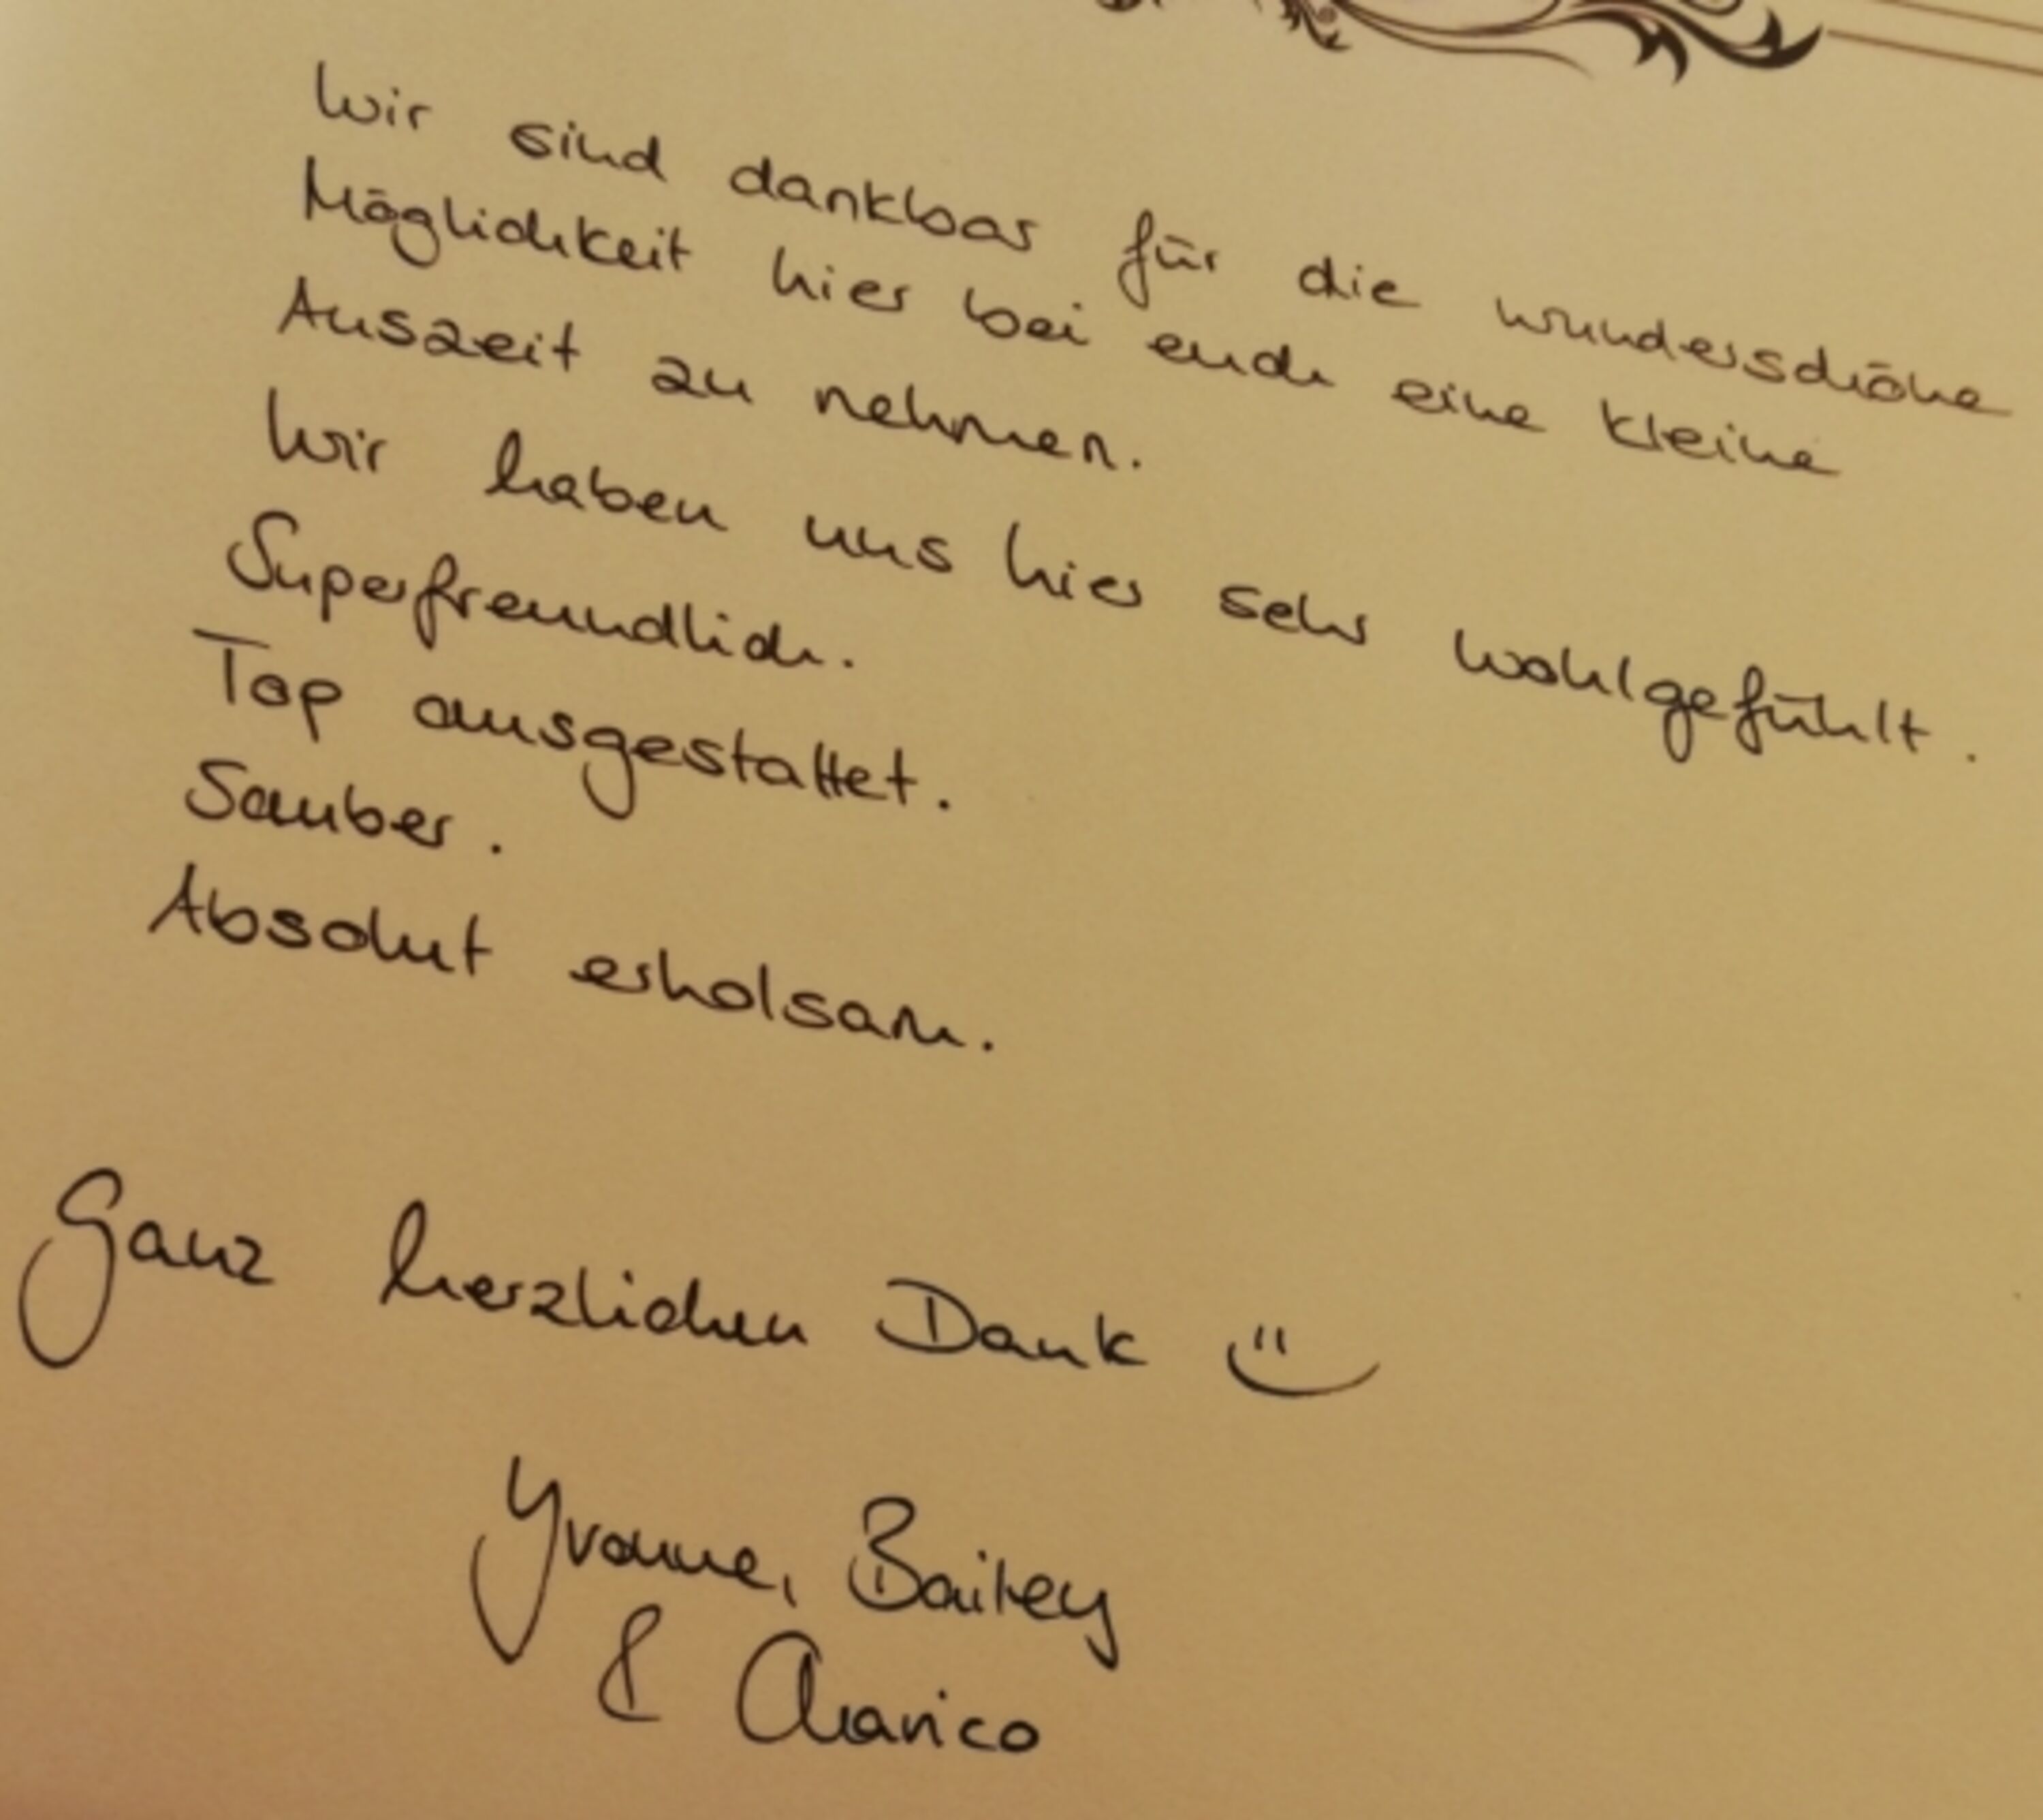 Wir sind dankbar für die wunderschöne
Möglichkeit hier bei euch eine kleine
Auszeit zu nehmen.
Wir haben uns hier sehr wohlgefühlt.
Superfreundlich.
Top ausgestattet.
Sauber.
Absolut erholsam.
Ganz herzlichen Dank
Yvonne, Bailey
&